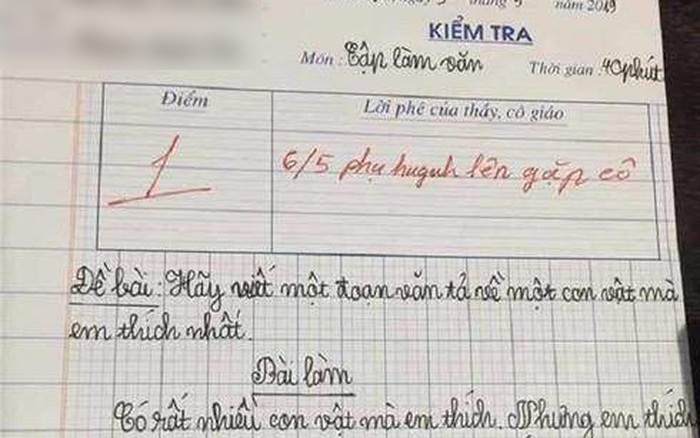 năm 2019
KIỂM TRA
Môn: Tập làm văn Thời gian: 40 phút
Điểm
Lời phê của thầy, cô giáo
1
6/5 phụ huynh lên gặp cô
Đề bài: Hãy viết một đoạn văn tả về một con vật mà
em thích nhất.
Bài làm
Có rất nhiều con vật mà em thích. Nhưng em thích